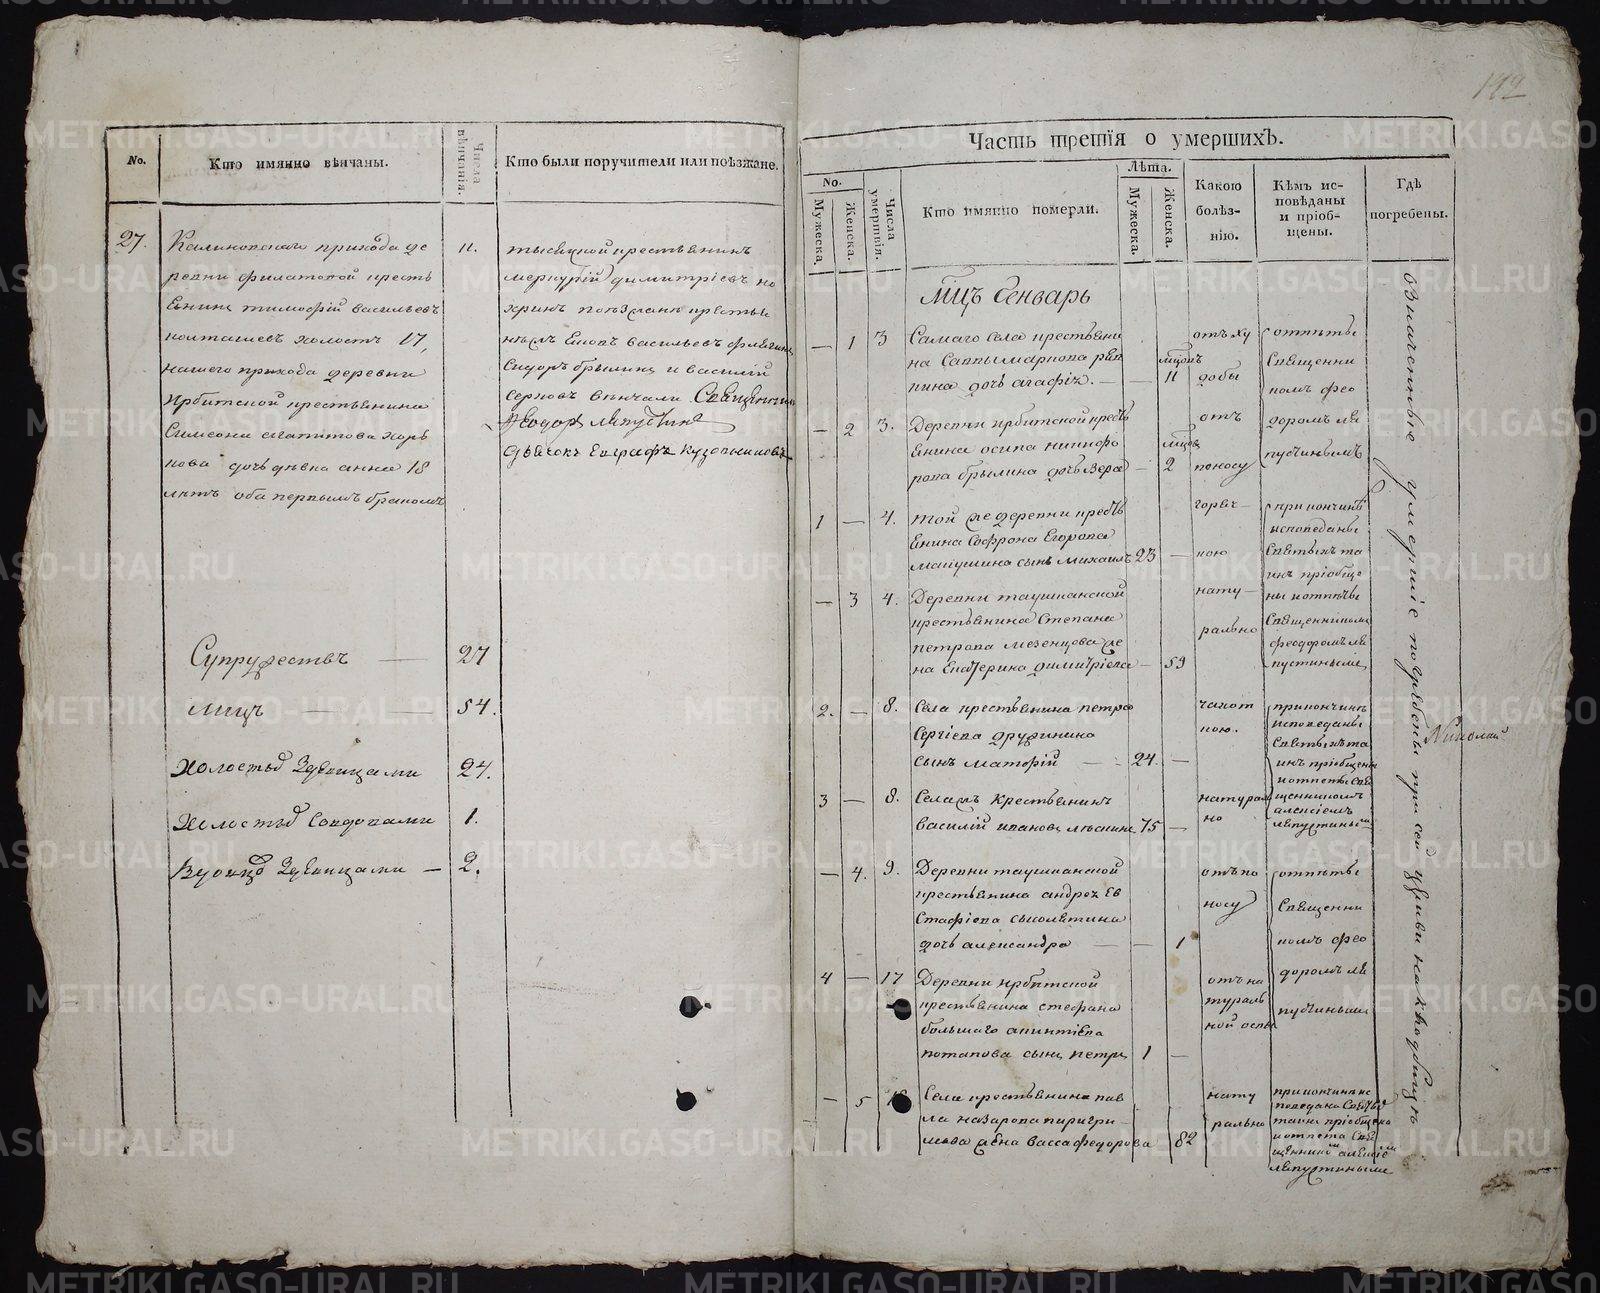 192
No.
Кто имянно вѣнчаны.
Числа вѣнчанія.
Кто были поручители или поѣзжане.
27.
Калиновскаго прихода де
ревни Филатовой кресть
янинъ Тимофей Васильевъ
холостъ 17,
нашего прихода деревни
Ирбитской крестьянина
Симеона
дочь дѣвка Анна 18
лѣтъ оба первымъ бракомъ
11.
тысяцкой крестьянинъ
Меркурій Димитріевъ
поѣзжане крестья
Васильевъ
Сидоръ Брылинъ и Василій
вѣнчали Священникъ
Феодоръ Ляпустинъ
Дьячокъ Евграфъ
Супружествъ — 27
лицъ — — 54.
Холостыхъ здѣвицами 24.
Холостыхъ совдовами 1.
Вдовцовъ здѣвицами — 2.
Часть третія о умершихъ.
No.
Мужеска.
Женска.
Числа умертвія.
Кто имянно померли.
Лѣта.
Мужеска.
Женска.
Какою
болѣз-
нію.
Кѣмъ ис-
повѣданы
и пріоб-
щены.
Гдѣ
погребены.
Мцъ Генварь
— 1 3
Самаго села крестьяни
на Саввы Маркова
дочь Агафія. —
мцовъ
11
отъ ху
добы
отпѣты
Священни
комъ Фео
доромъ Ля
пустинымъ
— 2 3.
Деревни Ирбитской кресть
янина Осипа Никифо
рова Брылина дочь Вера —
мцовъ
2
отъ
поносу
1 — 4.
Той же деревни кресть
янина Софрона Егорова
сынъ Михаилъ 23 —
горяч—
кою
при кончинѣ
исповеданы
Святыхъ та
инъ пріобще
ны и отпѣты
Священникомъ
Феодоромъ Ля
пустинымъ
— 3 4.
Деревни Таушканской
крестьянина Степана
Петрова Мезенцова же
на Екатерина Димитріева — 59
нату—
рально
2. — 8.
Села крестьянина Петра
Сергіева Дружинина
сынъ — 24. —
чахот
кою.
при кончинѣ
исповеданы
Святыхъ та
инъ пріобщены
и отпеты Свя
щенникомъ
Алексіемъ
Ляпустинымъ
3 — 8.
Села жъ крестьянинъ
Василій Ивановъ 75 —
натураль
но
— 4. 9.
Деревни Таушканской
крестьянина Андрея Ев
стафіева Сысолятина
дочь Александра — — 1
отъ по
носу
отпѣты
Священни
комъ Фео
доромъ Ля
пустинымъ
4 — 17
Деревни Ирбитской
крестьянина Стефана
большаго
Потапова сынъ Петръ 1 —
отъ на
тураль
ной оспы
— 5
Села крестьянина Пав
ла Назарова Перегри
мова жена Васса Федорова 82
нату
рально
при кончине ис
поведана Святыхъ
таинъ пріобщена
и отпета Свя
щенникомъ Алексіемъ
Ляпустинымъ
Означенные умершіе погребены при сей церкви на кладбищѣ
Николай
METRIKI.GASO-URAL.RU